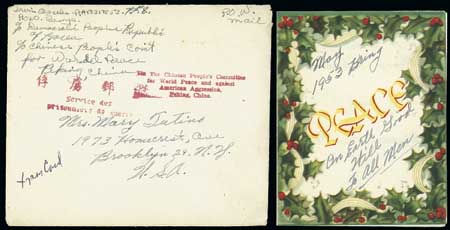 P.O.W.
mail
To Democratic People's Republic
of Korea
% Chinese People's Com't
for World Peace
Peking China
俘虜郵
Service des
prisonniers de guerre
The Chinese People's Committee
for World Peace and against
American Aggression,
Peking, China.
Mrs. Mary
1973 Homecrest, Ave
Brooklyn 29, N.Y.
U.S.A.
Xmas Card
May
1953 Bring
PEACE
On Earth
Good
Will
To All Men